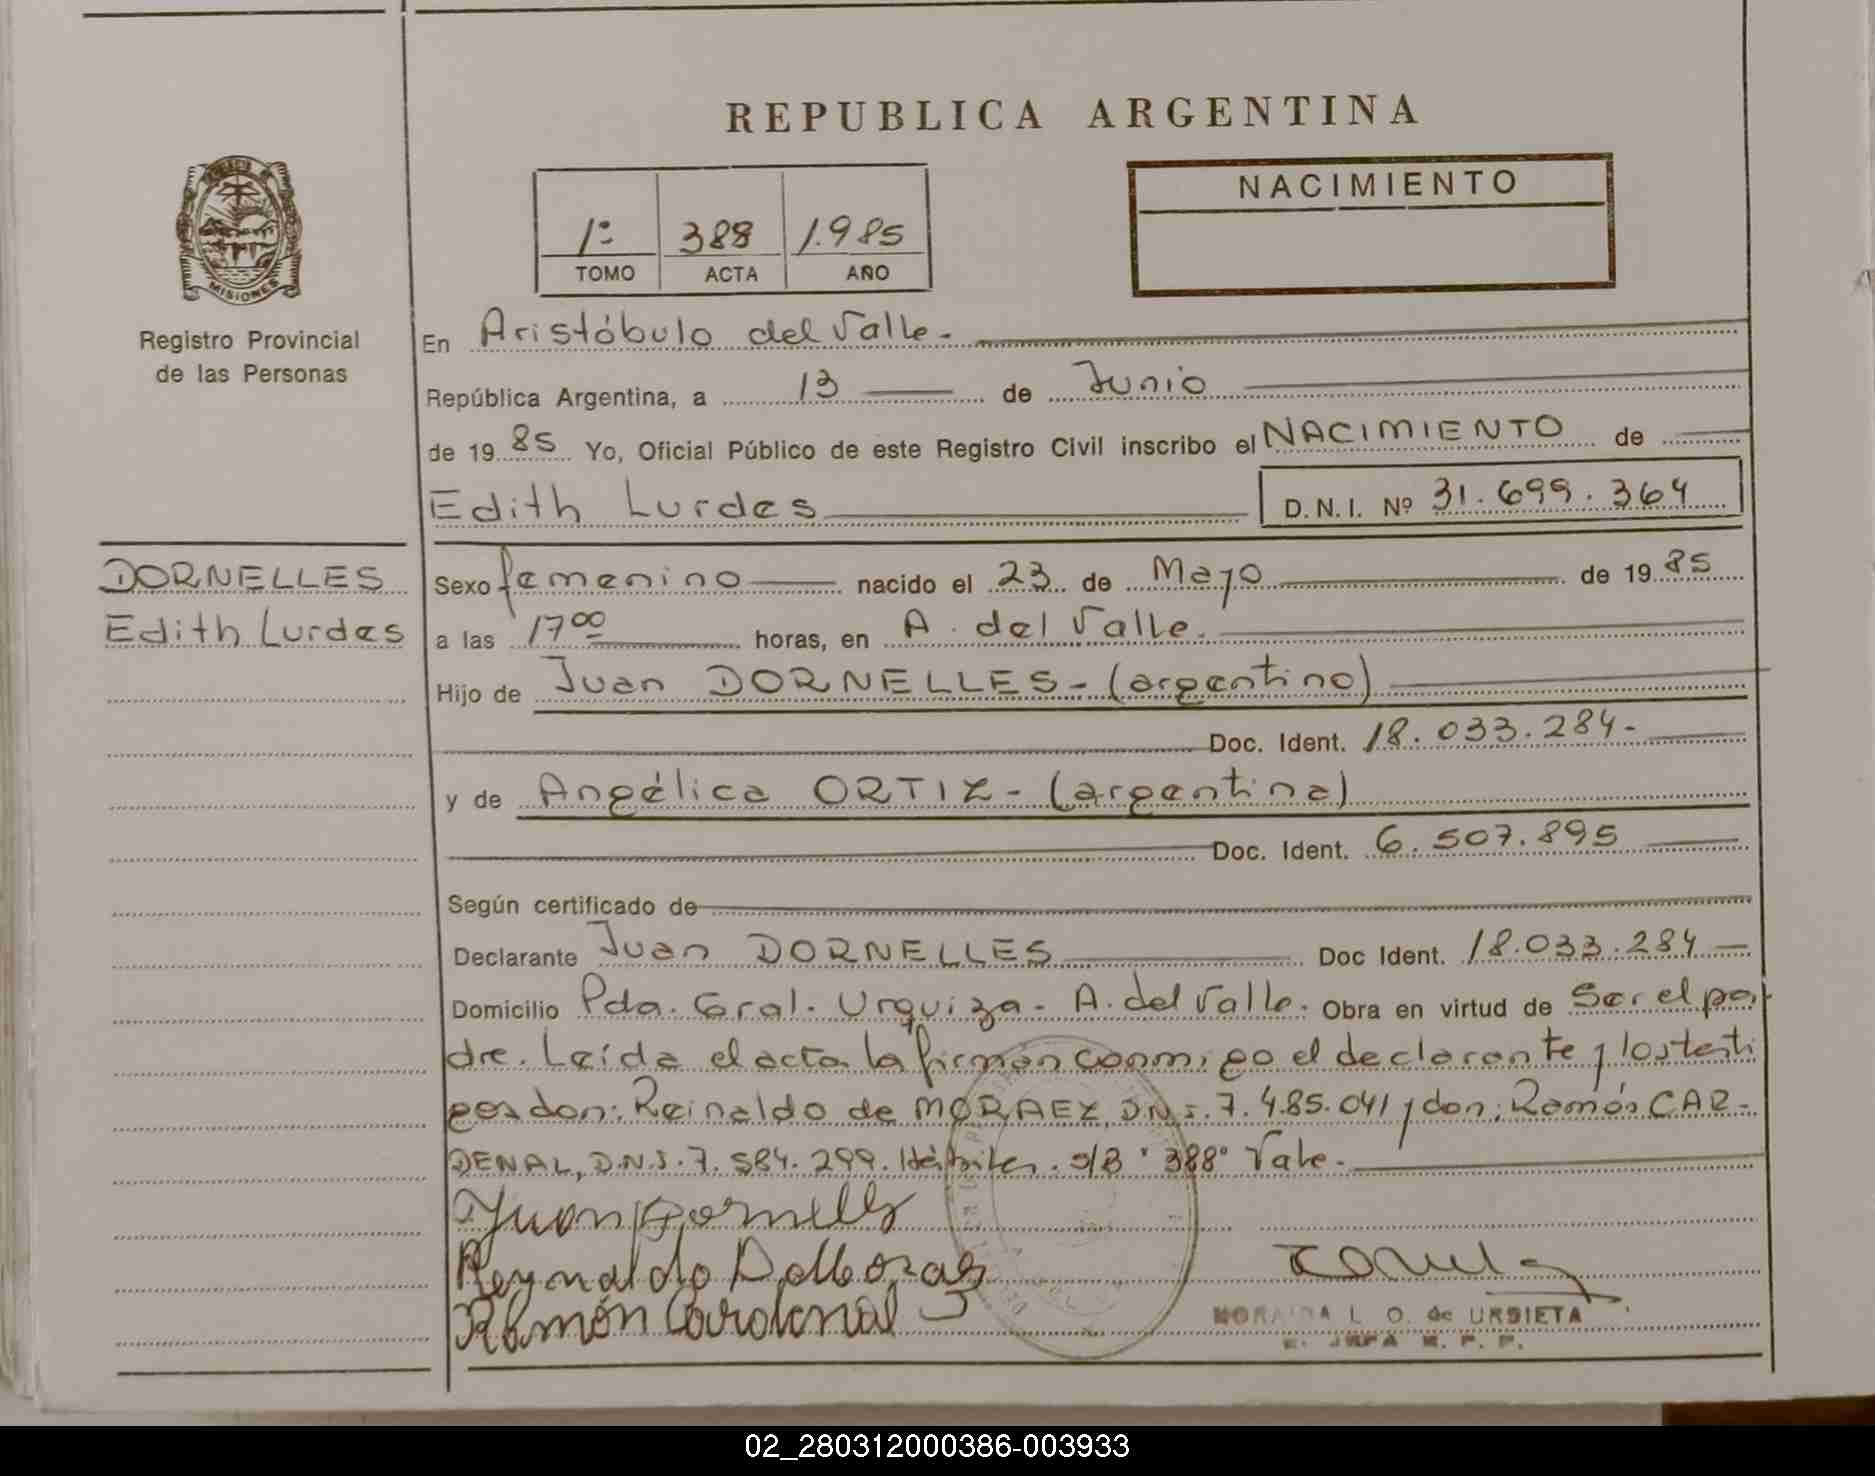 REPUBLICA ARGENTINA
NACIMIENTO
1º 388 1.985
TOMO ACTA AÑO
MISIONES
Registro Provincial
de las Personas
En Aristóbulo del Valle.-
República Argentina, a 13 de Junio
de 1985 Yo, Oficial Público de este Registro Civil inscribo el NACIMIENTO de
Edith Lurdes D.N.I. Nº 31.699.364
DORNELLES
Edith Lurdes
Sexo femenino nacido el 23 de Mayo de 1985
a las 17⁰⁰ horas, en A. del Valle.
Hijo de Juan DORNELLES - (argentino)
Doc. Ident. 18.033.284-
y de Angélica ORTIZ - (argentina)
Doc. Ident. 6.507.895
Según certificado de
Declarante Juan DORNELLES Doc Ident. 18.033.284
Domicilio Pda. Gral. Urquiza - A. del Valle. Obra en virtud de Ser el pa-
dre. Leída el acta la firman conmigo el declarante y los testi
gos don: Reinaldo de MORAEZ, D.N.I. 7.485.041 y don: Ramón CAR-
DENAL, D.N.I. 7.584.299. Hábiles. s/B "388" Vale.-
Juan Dornelles
Reynaldo
Ramón Cardenal
MORAIDA L. O. de URBIETA
R. P. P.
02_280312000386-003933